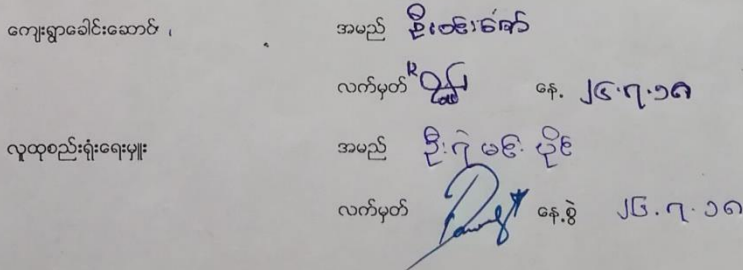 ကျေးရွာခေါင်းဆောင် ၊ အမည် ဦးဝင်းဇော်
လက်မှတ် နေ့. ၂၄.၇.၁၈
လူထုစည်းရုံးရေးမှူး အမည် ဦး
လက်မှတ် နေ့.စွဲ ၂၆.၇.၁၈